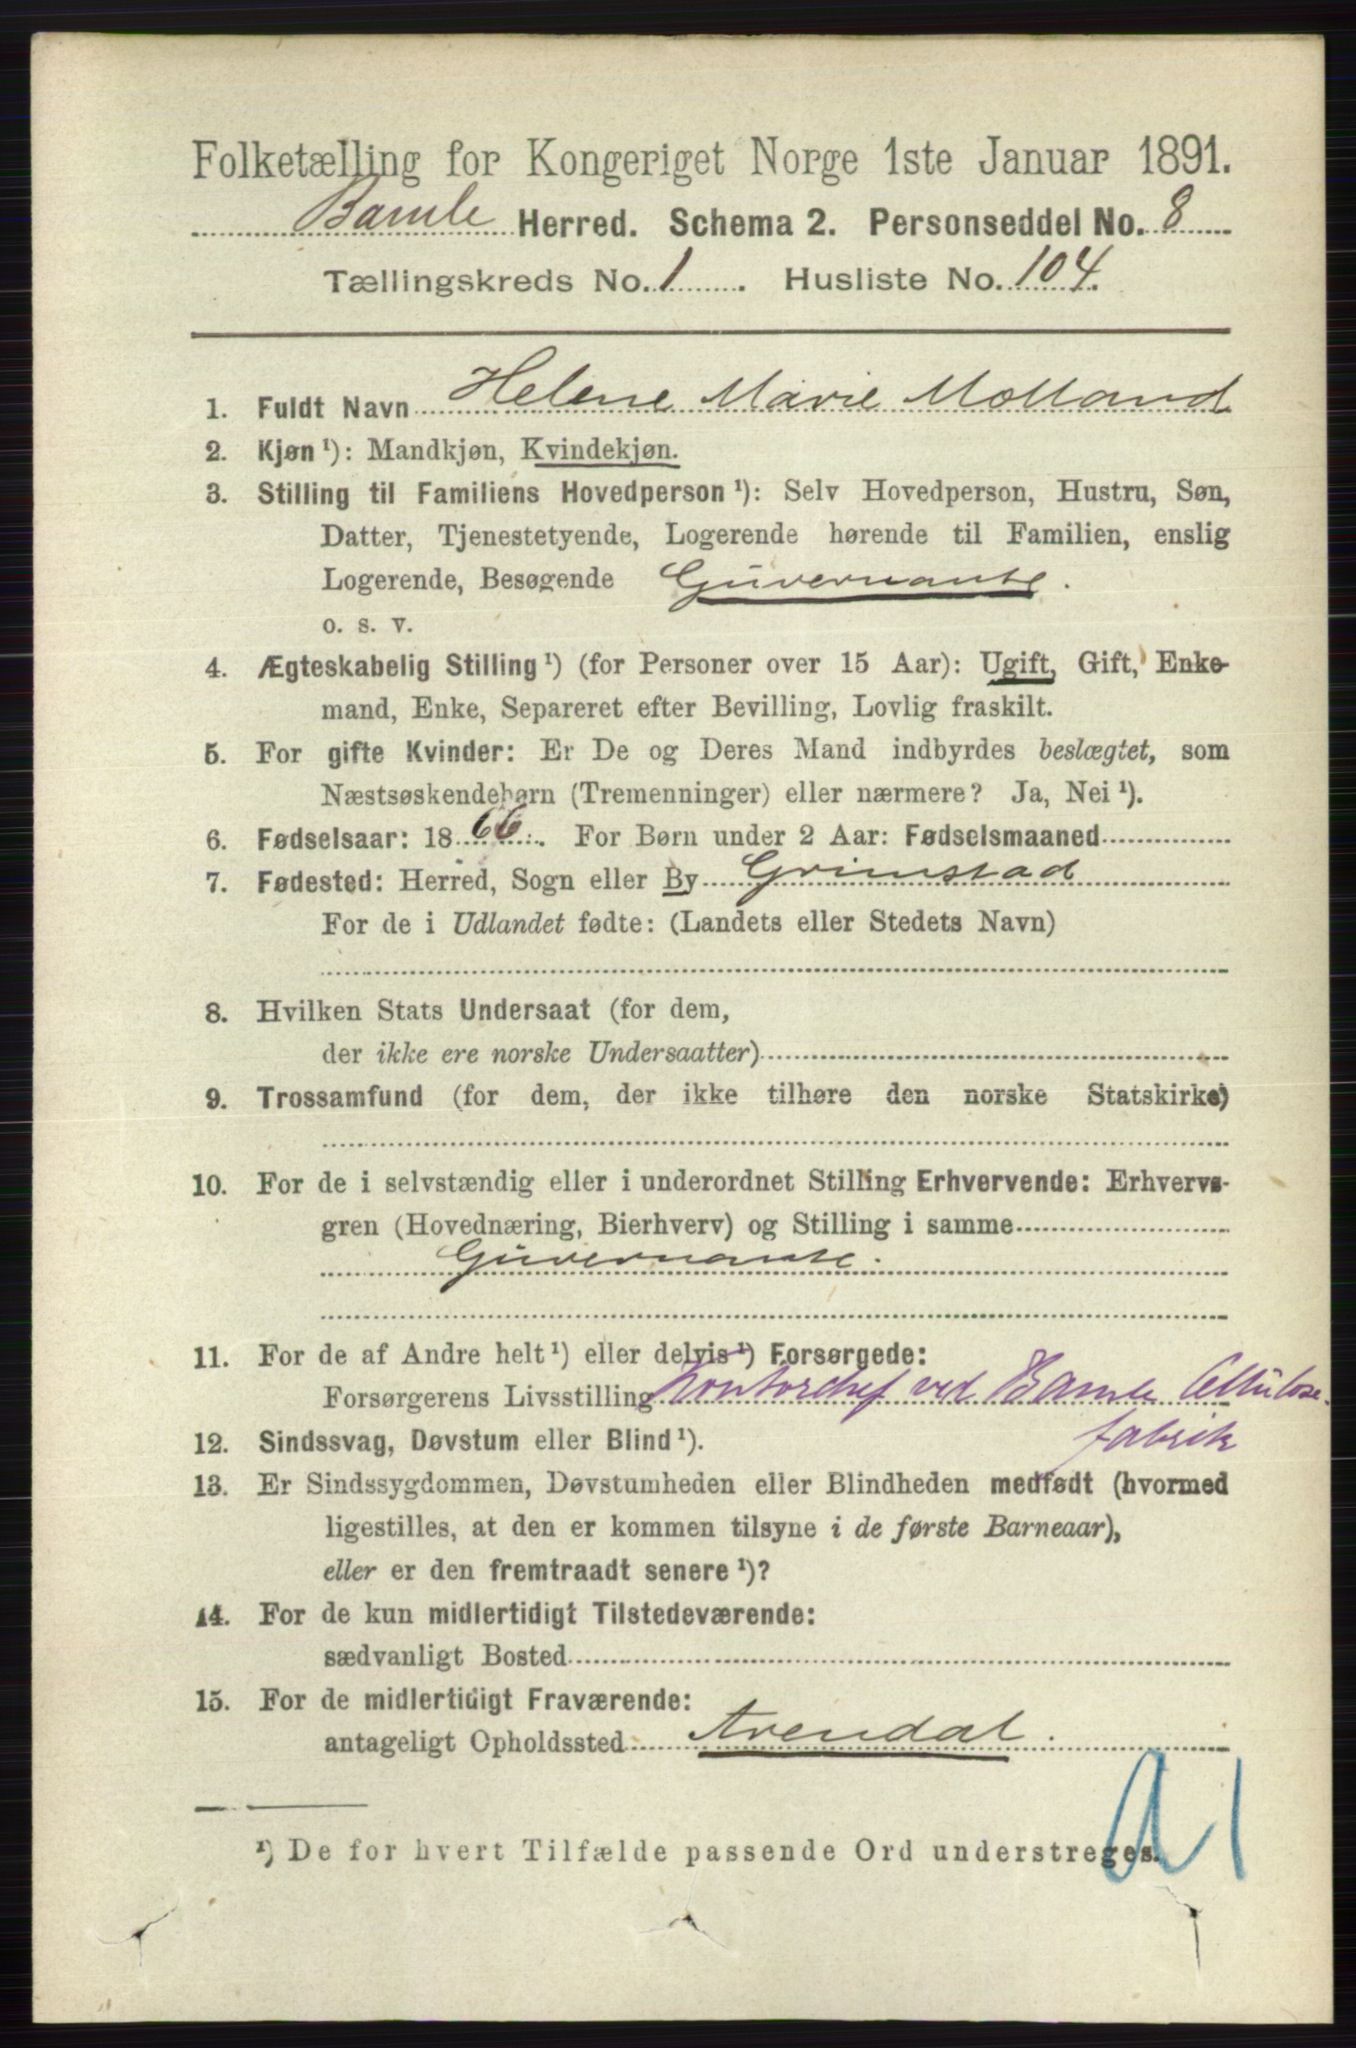 Folketælling for Kongeriget Norge 1ste Januar 1891.
Bamle Herred. Schema 2. Personseddel No. 8
Tællingskreds No. 1. Husliste No. 104.
1. Fuldt Navn Helene Marie Molland
2. Kjøn ¹): Mandkjøn, Kvindekjøn.
3. Stilling til Familiens Hovedperson ¹): Selv Hovedperson, Hustru, Søn,
Datter, Tjenestetyende, Logerende hørende til Familien, enslig
Logerende, Besøgende Guvernante.
o. s. v.
4. Ægteskabelig Stilling ¹) (for Personer over 15 Aar): Ugift, Gift, Enke-
mand, Enke, Separeret efter Bevilling, Lovlig fraskilt.
5. For gifte Kvinder: Er De og Deres Mand indbyrdes beslægtet, som
Næstsøskendebørn (Tremenninger) eller nærmere? Ja, Nei ¹).
6. Fødselsaar: 1866. For Børn under 2 Aar: Fødselsmaaned
7. Fødested: Herred, Sogn eller By Grimstad
For de i Udlandet fødte: (Landets eller Stedets Navn)
8. Hvilken Stats Undersaat (for dem,
der ikke ere norske Undersaatter)
9. Trossamfund (for dem, der ikke tilhøre den norske Statskirke)
10. For de i selvstændig eller i underordnet Stilling Erhvervende: Erhvervs-
gren (Hovednæring, Bierhverv) og Stilling i samme
Guvernante.
11. For de af Andre helt ¹) eller delvis ¹) Forsørgede:
Forsørgerens Livsstilling Kontorchef ved Bamle Cellulose-
fabrik
12. Sindssvag, Døvstum eller Blind ¹).
13. Er Sindssygdommen, Døvstumheden eller Blindheden medfødt (hvormed
ligestilles, at den er kommen tilsyne i de første Barneaar),
eller er den fremtraadt senere ¹)?
14. For de kun midlertidigt Tilstedeværende:
sædvanligt Bosted
15. For de midlertidigt Fraværende:
antageligt Opholdssted Arendal.
¹) De for hvert Tilfælde passende Ord understreges.